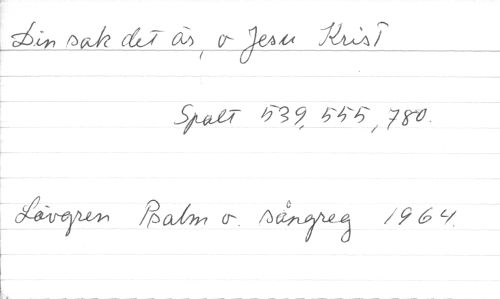 Din sak det är, o Jesu Krist
Spalt 539, 555, 780.
Lövgren Psalm o. sångreg 1964.